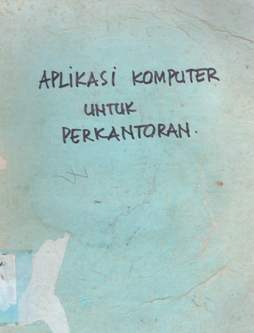 APLIKASI KOMPUTER
UNTUK
PERKANTORAN.